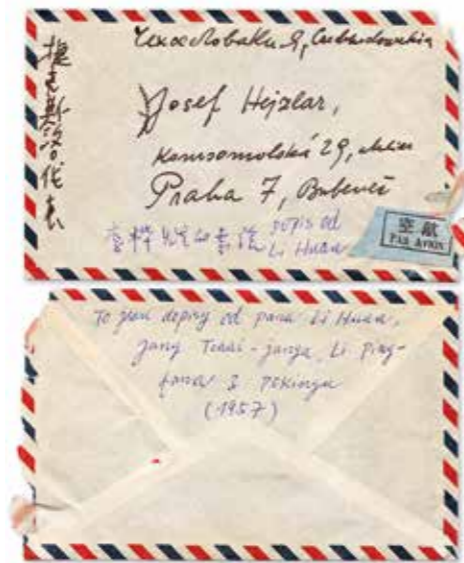 捷克斯洛伐克
Чехословакия, Czechoslovakia
Josef Hejzlar,
Komsomolská 29,
Praha 7, Bubeneč
李樺先生的書信 dopis od
Li Huaa
空航
PAR AVION
To jsou dopisy od pana Li Huaa,
Jang janga, Li Ping-
fana z Pekingu
(1957)